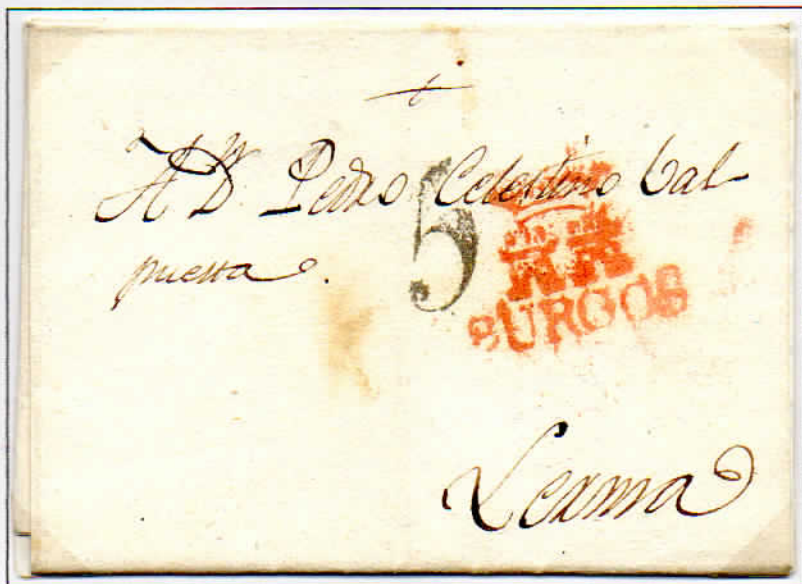 A D.ⁿ Pedro Celestino Bal
puesta.
5
BURGOS
Lerma